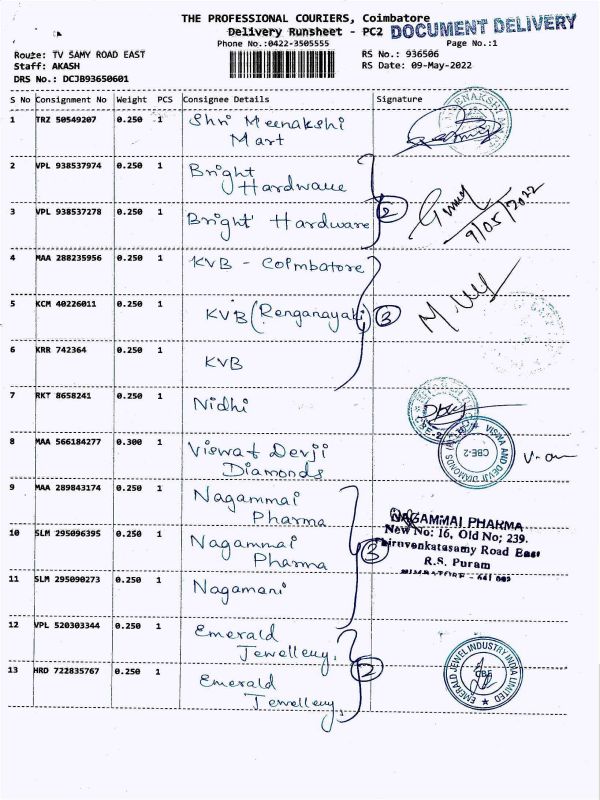 THE PROFESSIONAL COURIERS, Coimbatore
Delivery Runsheet - PC2 DOCUMENT DELIVERY
Phone No.:0422-3505555 Page No.:1
Route: TV SAMY ROAD EAST RS No.: 936506
Staff: AKASH RS Date: 09-May-2022
DRS No.: DCJB93650601
S No Consignment No Weight PCS Consignee Details Signature
1 TRZ 50549207 0.250 1 Shri Meenakshi
Mart
2 VPL 938537974 0.250 1 Bright
Hardware
3 VPL 938537278 0.250 1 Bright Hardware 2
9/05/2022
4 MAA 288235956 0.250 1 KVB - Coimbatore
5 KCM 40226011 0.250 1 KVB (Renganayaki) 3
6 KRR 742364 0.250 1 KVB
7 RKT 8658241 0.250 1 Nidhi
8 MAA 566184277 0.300 1 Viswa & Devji
Diamonds
VISWA AND DEVJI DIAMONDS
CBE-2
9 MAA 289843174 0.250 1 Nagammai
Pharma
10 SLM 295096395 0.250 1 Nagammai
Pharma 3
NAGAMMAI PHARMA
New No: 16, Old No; 239.
Thiruvenkatasamy Road East
R.S. Puram
11 SLM 295090273 0.250 1 Nagamani
12 VPL 520303344 0.250 1 Emerald
Jewellery,
13 HRD 722835767 0.250 1 Emerald 2
Jewellery,
EMERALD JEWEL INDUSTRY INDIA LIMITED
CBE